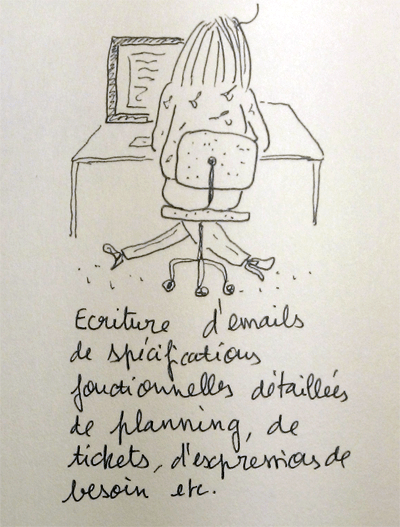 Ecriture d'emails
de spécifications
fonctionnelles détaillées
de planning, de
tickets, d'expressions de
besoin etc.